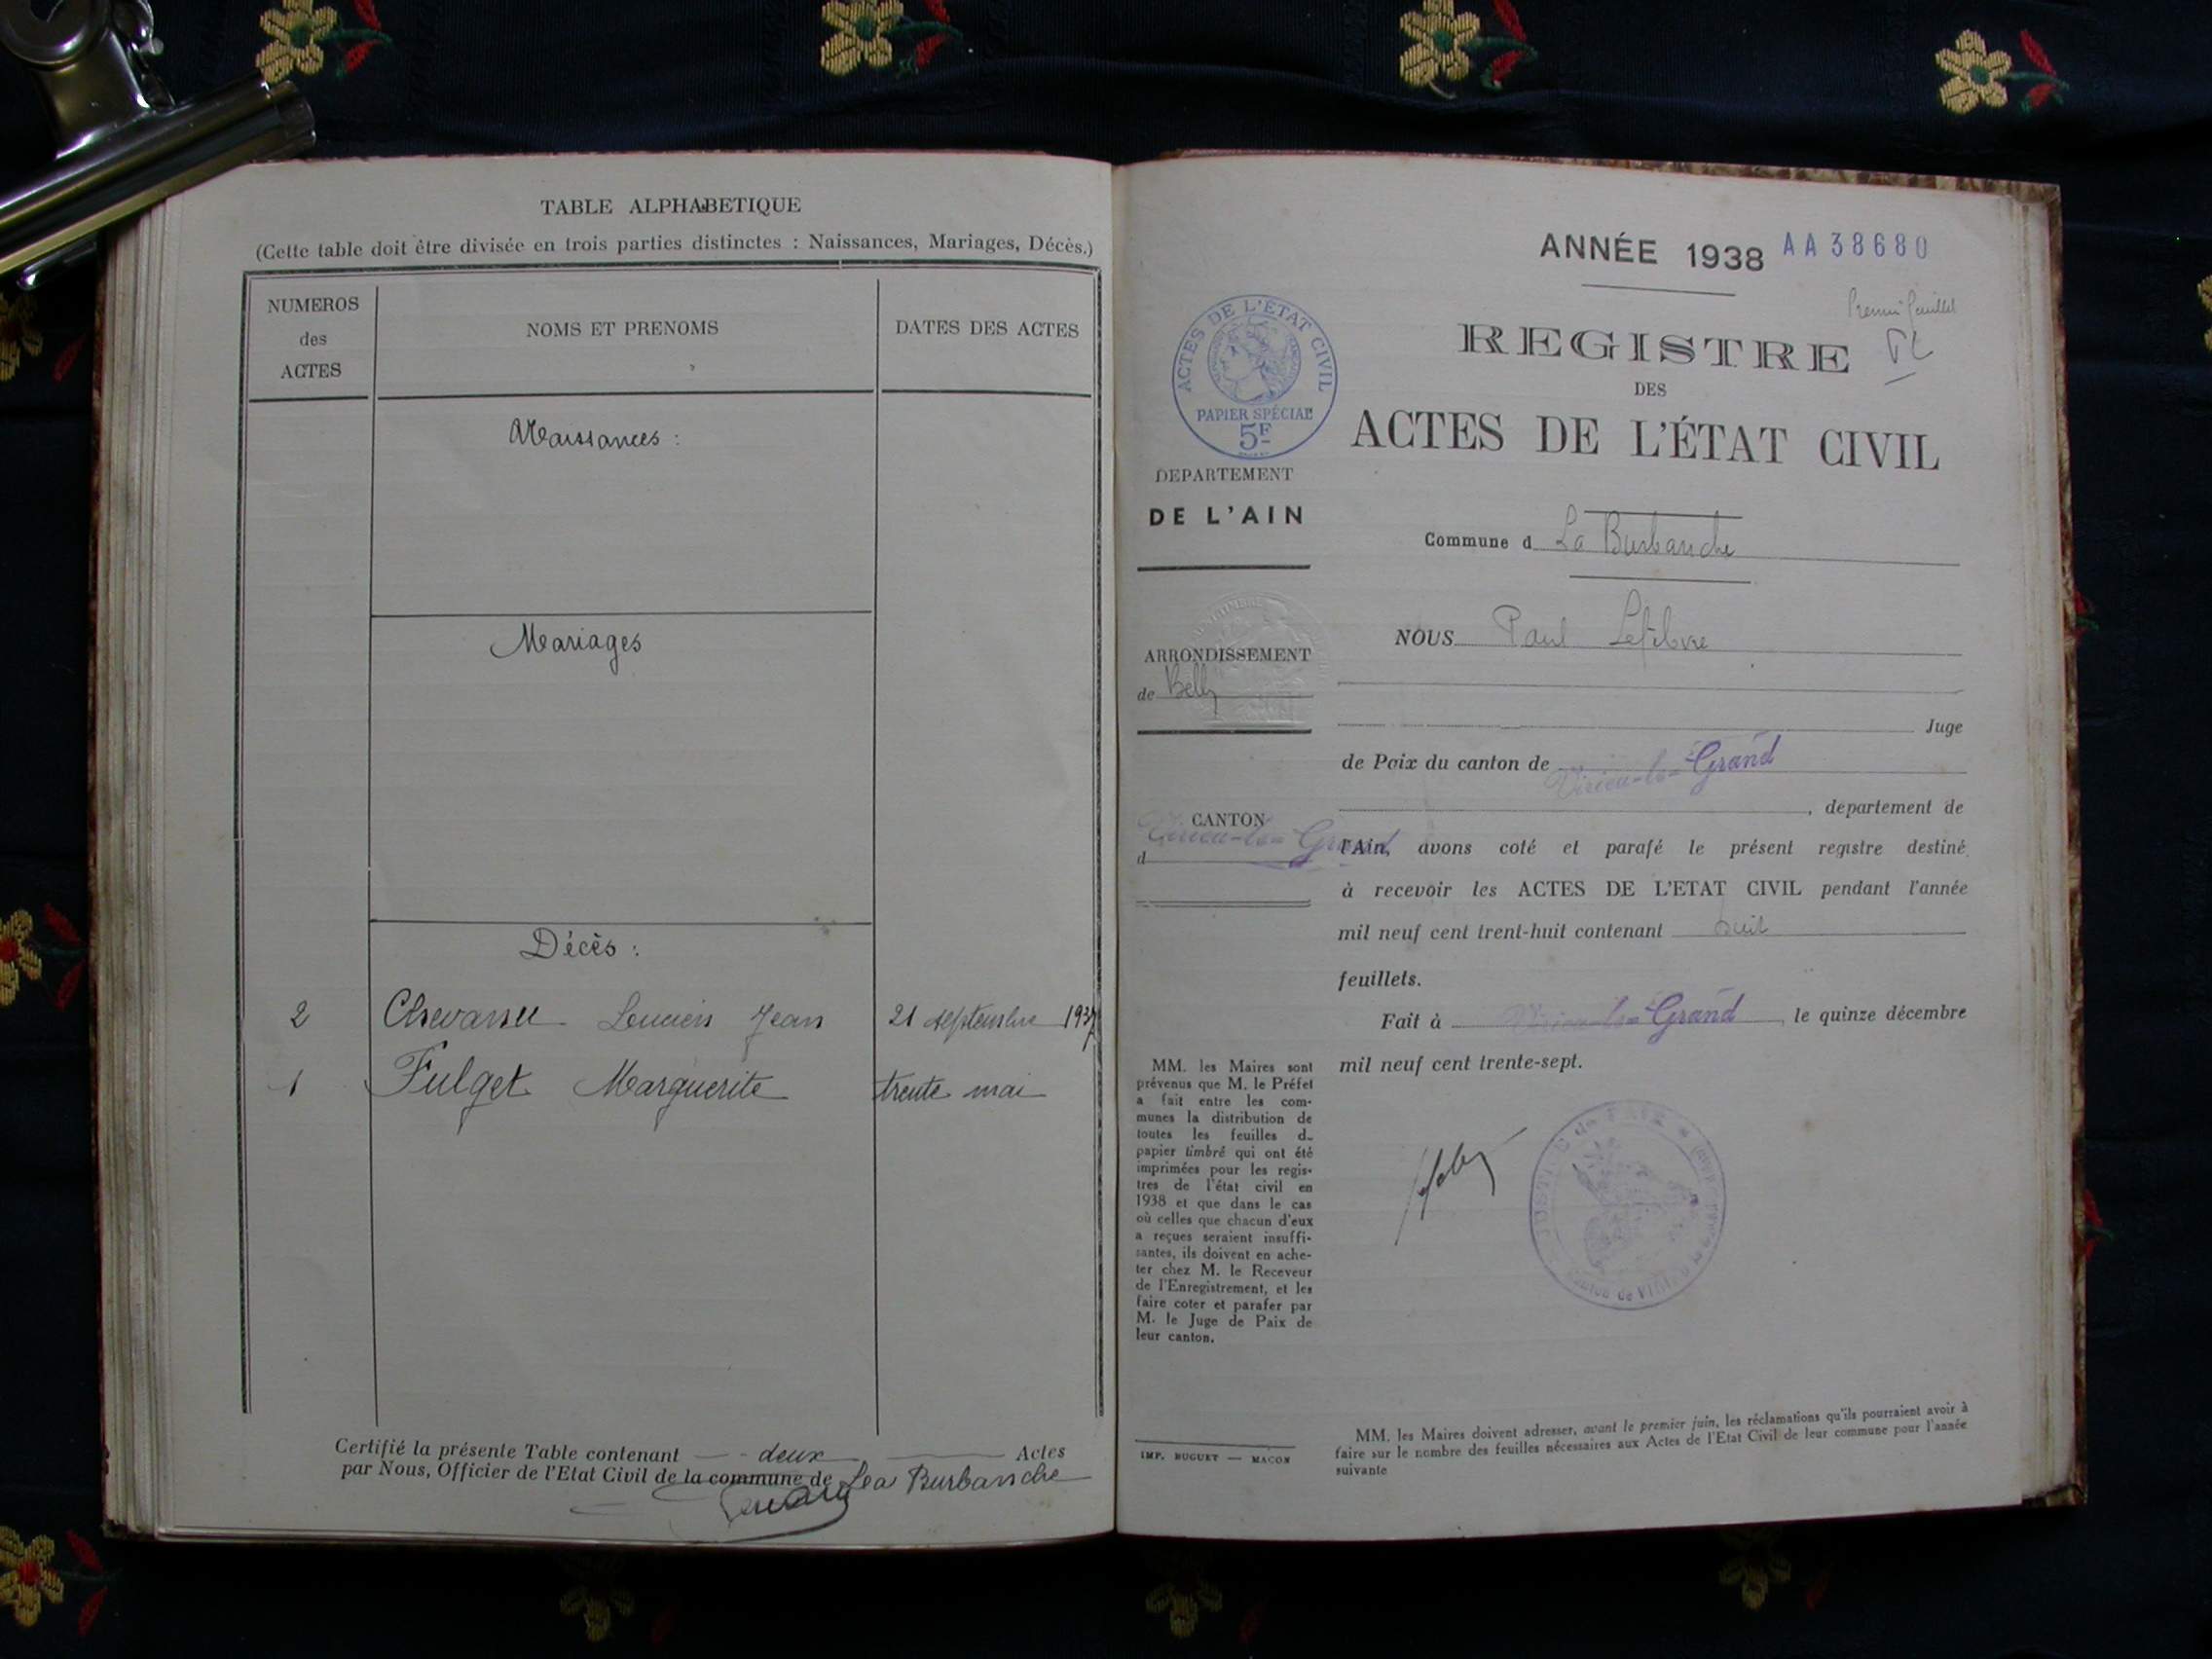 TABLE ALPHABETIQUE
(Cette table doit être divisée en trois parties distinctes : Naissances, Mariages, Décès.)
NUMEROS
des
ACTES
NOMS ET PRENOMS
DATES DES ACTES
Naissances :
Mariages
Décès :
2 Chevassu Lucien Jean 21 septembre 1937
1 Fulget Marguerite trente mai
Certifié la présente Table contenant deux Actes
par Nous, Officier de l'Etat Civil de la commune de La Burbanche
ANNÉE 1938 AA38680
Premier feuillet
PL
REGISTRE
DES
ACTES DE L'ÉTAT CIVIL
ACTES DE L'ÉTAT CIVIL
PAPIER SPÉCIAL
5F
DEPARTEMENT
DE L'AIN
Commune d La Burbanche
NOUS Paul Lefebvre
ARRONDISSEMENT
de Belley
Juge
de Paix du canton de Virieu-le-Grand
, departement de
CANTON
d Virieu-le-Grand
l'Ain, avons coté et parafé le présent registre destiné
à recevoir les ACTES DE L'ETAT CIVIL pendant l'année
mil neuf cent trent-huit contenant huit
feuillets.
Fait à Virieu-le-Grand, le quinze décembre
mil neuf cent trente-sept.
MM. les Maires sont
prévenus que M. le Préfet
a fait entre les com-
munes la distribution de
toutes les feuilles d
papier timbré qui ont été
imprimées pour les regis-
tres de l'état civil en
1938 et que dans le cas
où celles que chacun d'eux
a reçues seraient insuffi-
santes, ils doivent en ache-
ter chez M. le Receveur
de l'Enregistrement, et les
faire coter et parafer par
M. le Juge de Paix de
leur canton.
JUSTICE de PAIX
IMP. BUGUET — MACON
MM. les Maires doivent adresser, avant le premier juin, les réclamations qu'ils pourraient avoir à
faire sur le nombre des feuilles nécessaires aux Actes de l'Etat Civil de leur commune pour l'année
suivante